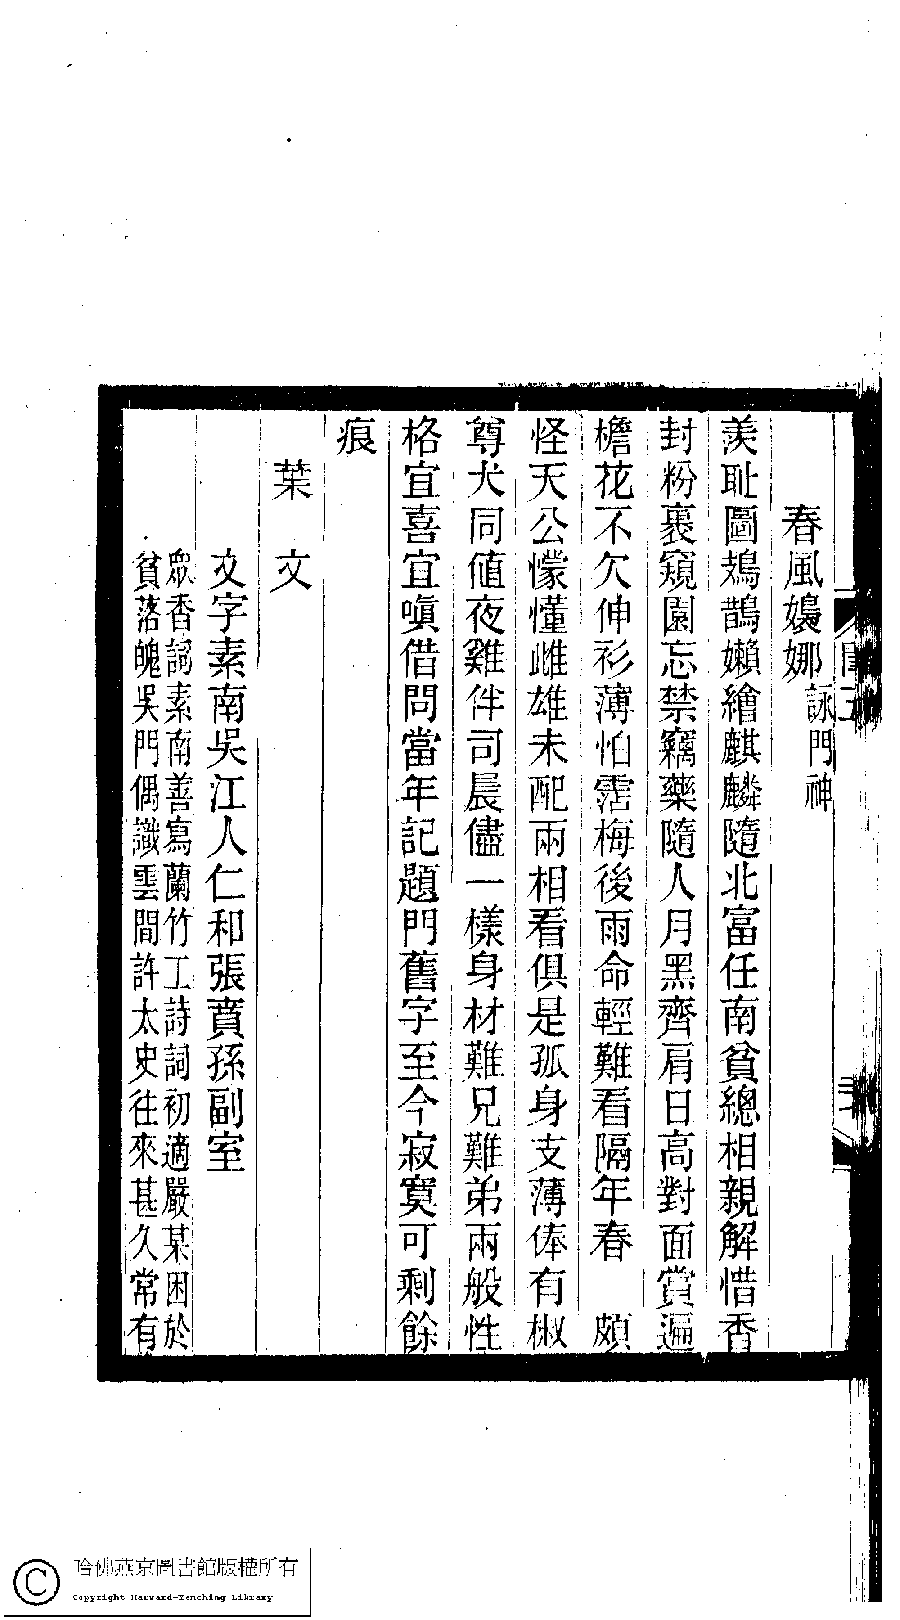 春風嬝娜詠門神
羨耻圖鳷鵲嬾繪麒麟隨北富任南貧總相親解惜香
封粉裹窺園忘禁竊藥隨人月黑齊肩日高對面賞遍
檐花不欠伸衫薄怕霑梅後雨命輕難看隔年春　頗
怪天公懞懂雌雄未配兩相看俱是孤身支薄俸有椒
尊犬同値夜雞伴司晨儘一樣身材難兄難弟兩般性
格宜喜宜嗔借問當年記題門舊字至今寂寞可剩餘
痕
葉　文
文字素南吳江人仁和張賁孫副室
眾香詞素南善寫蘭竹工詩詞初適嚴某困於
貧落魄吳門偶識雲間許太史往來甚久常有
哈佛燕京圖書館版權所有
Copyright Harvard-Yenching Library